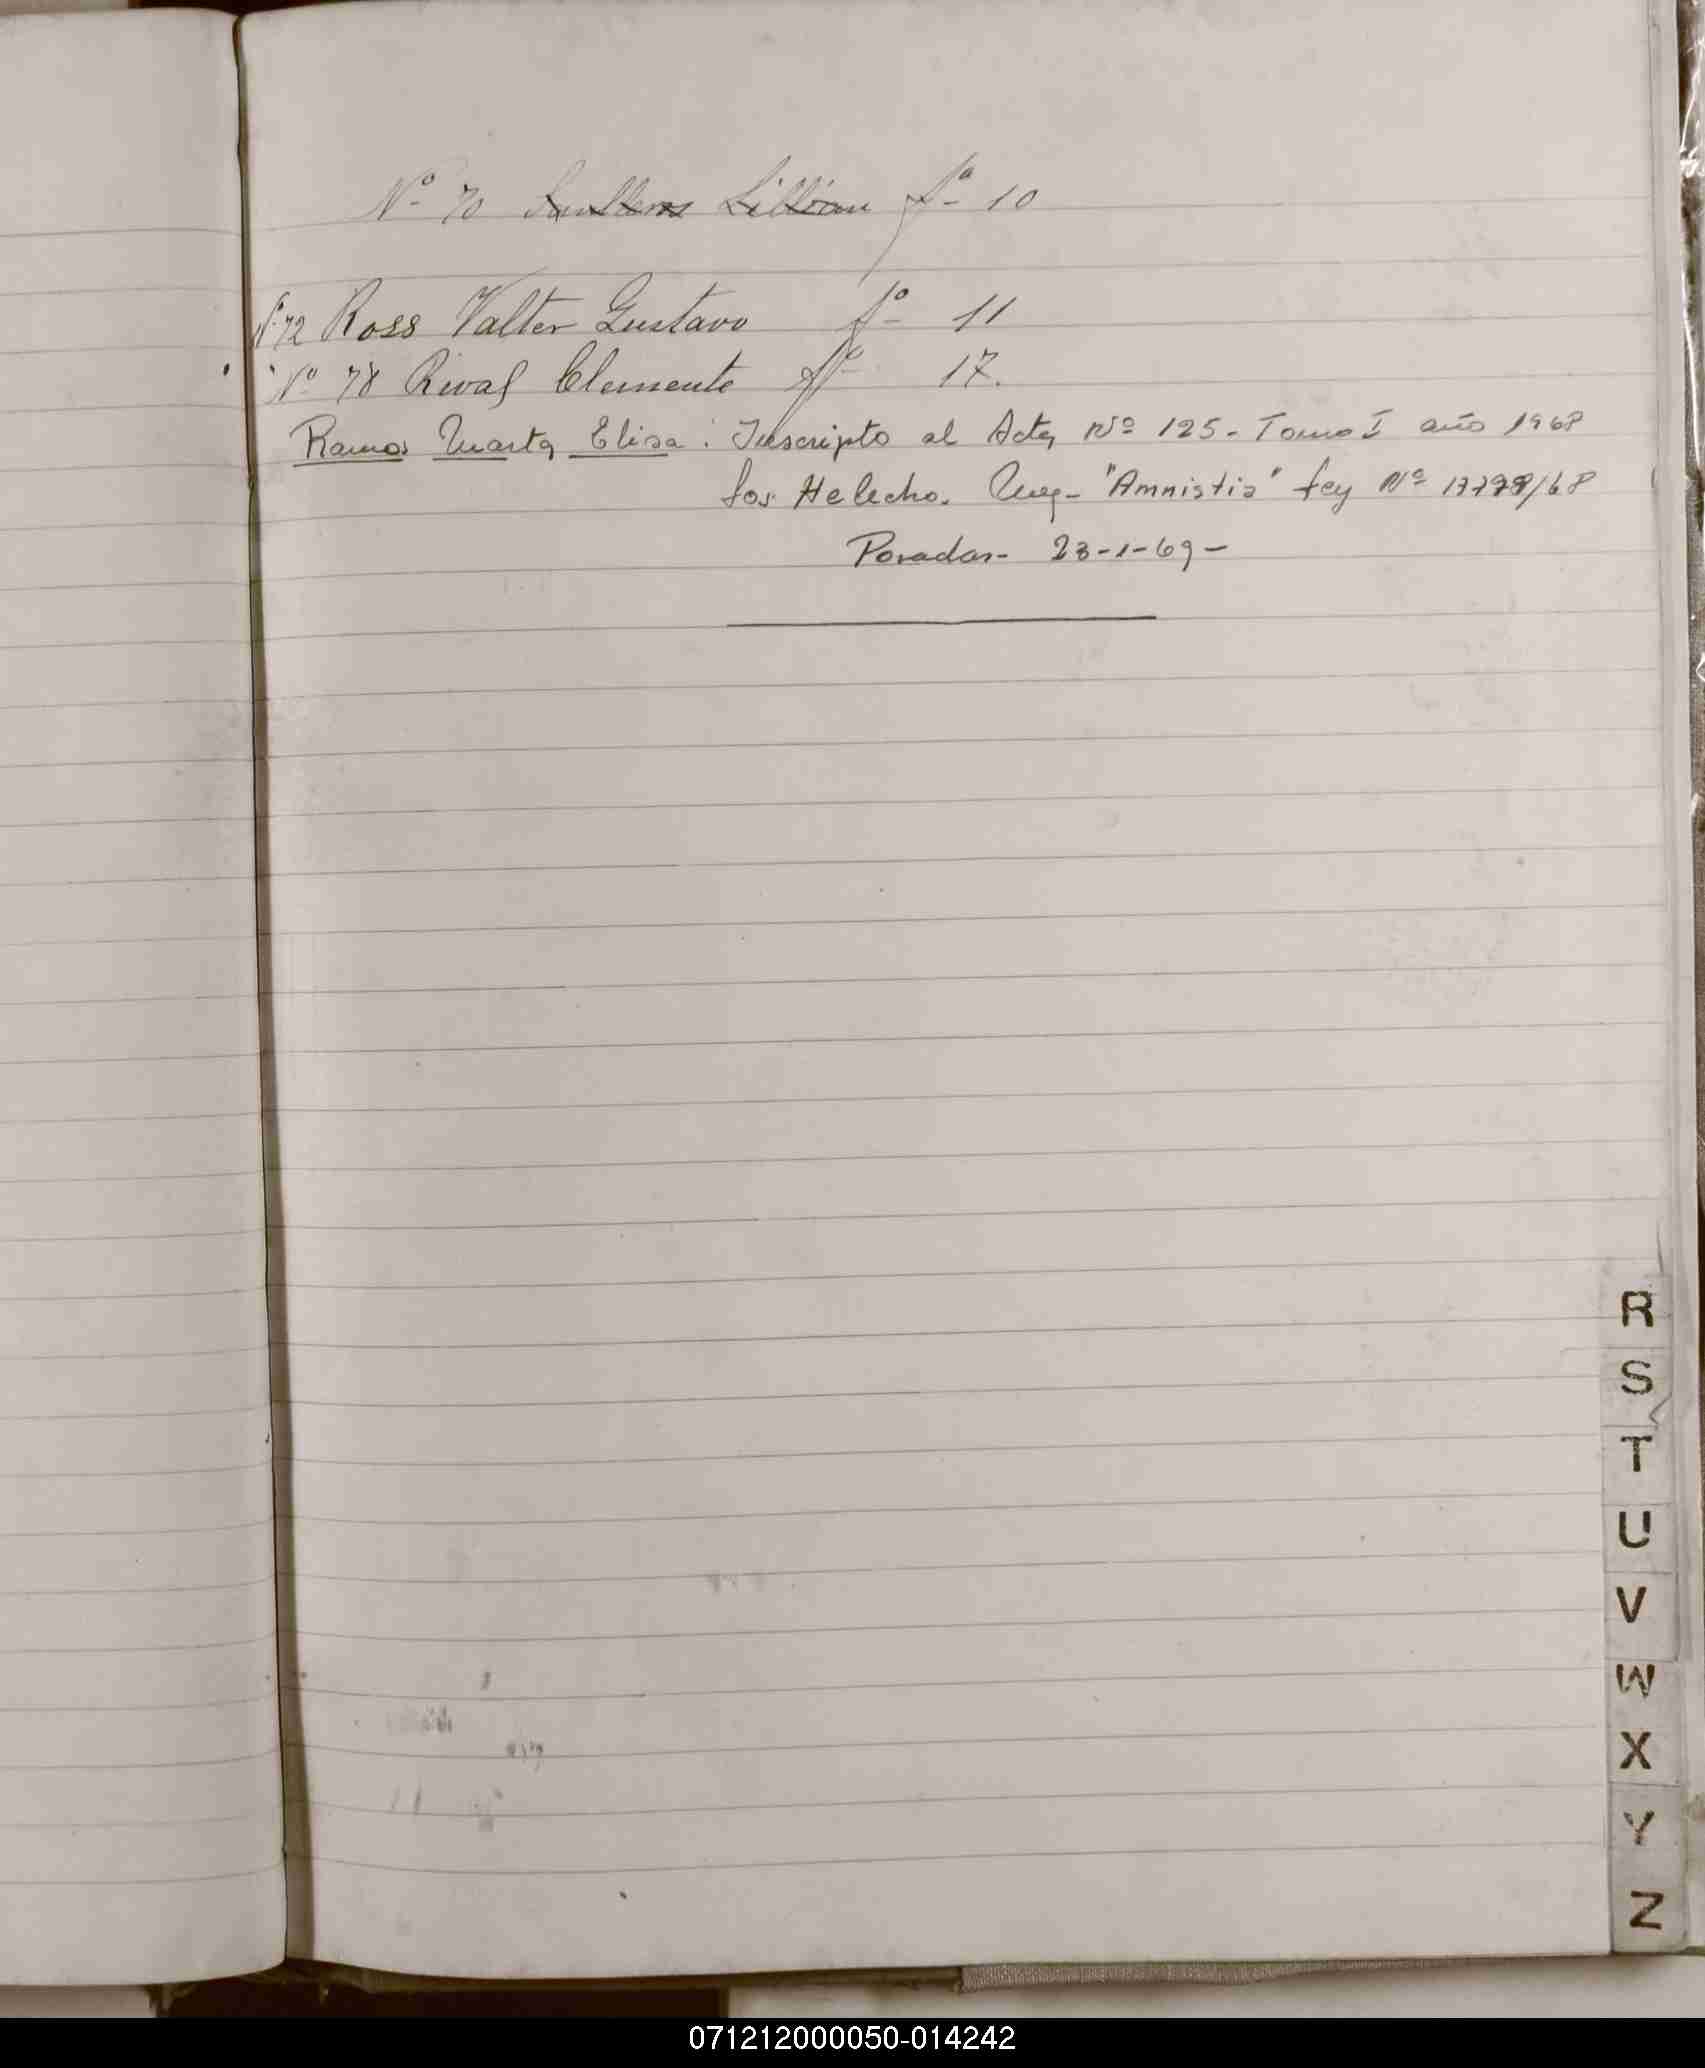 Nº 70 Lillian fº 10
Nº 72 Ross Valter Gustavo fº 11
Nº 78 Rival Clemente fº 17.
Ramos Marta Elisa: Inscripto al Acta Nº 125 - Tomo I año 1968
Los Helechos. "Amnistia" Ley Nº
Posadas - 23-1-69 -
R
S
T
U
V
W
X
Y
Z
071212000050-014242